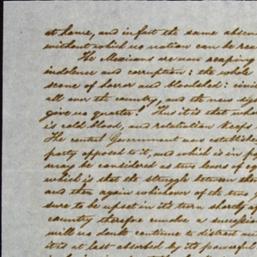 at home, and in fact the same absen
without which no nation can be rea
The Mexicans are now reaping
indolence and corruption: the whole
scene of horror and bloodshed: civil
all over the country, and the new sys
give us quarter! Thus it is that where
is cold blood, and retaliation keeps
The central Government now establishe
party opposed to it, and which is in fa
may be considered as two lines of
which is that the struggle between the
and then again whichever of the two
sure to be upset in its turn shortly af
country therefore under a successi
will no doubt continue to distract un
it is at last absorbed by its powerful